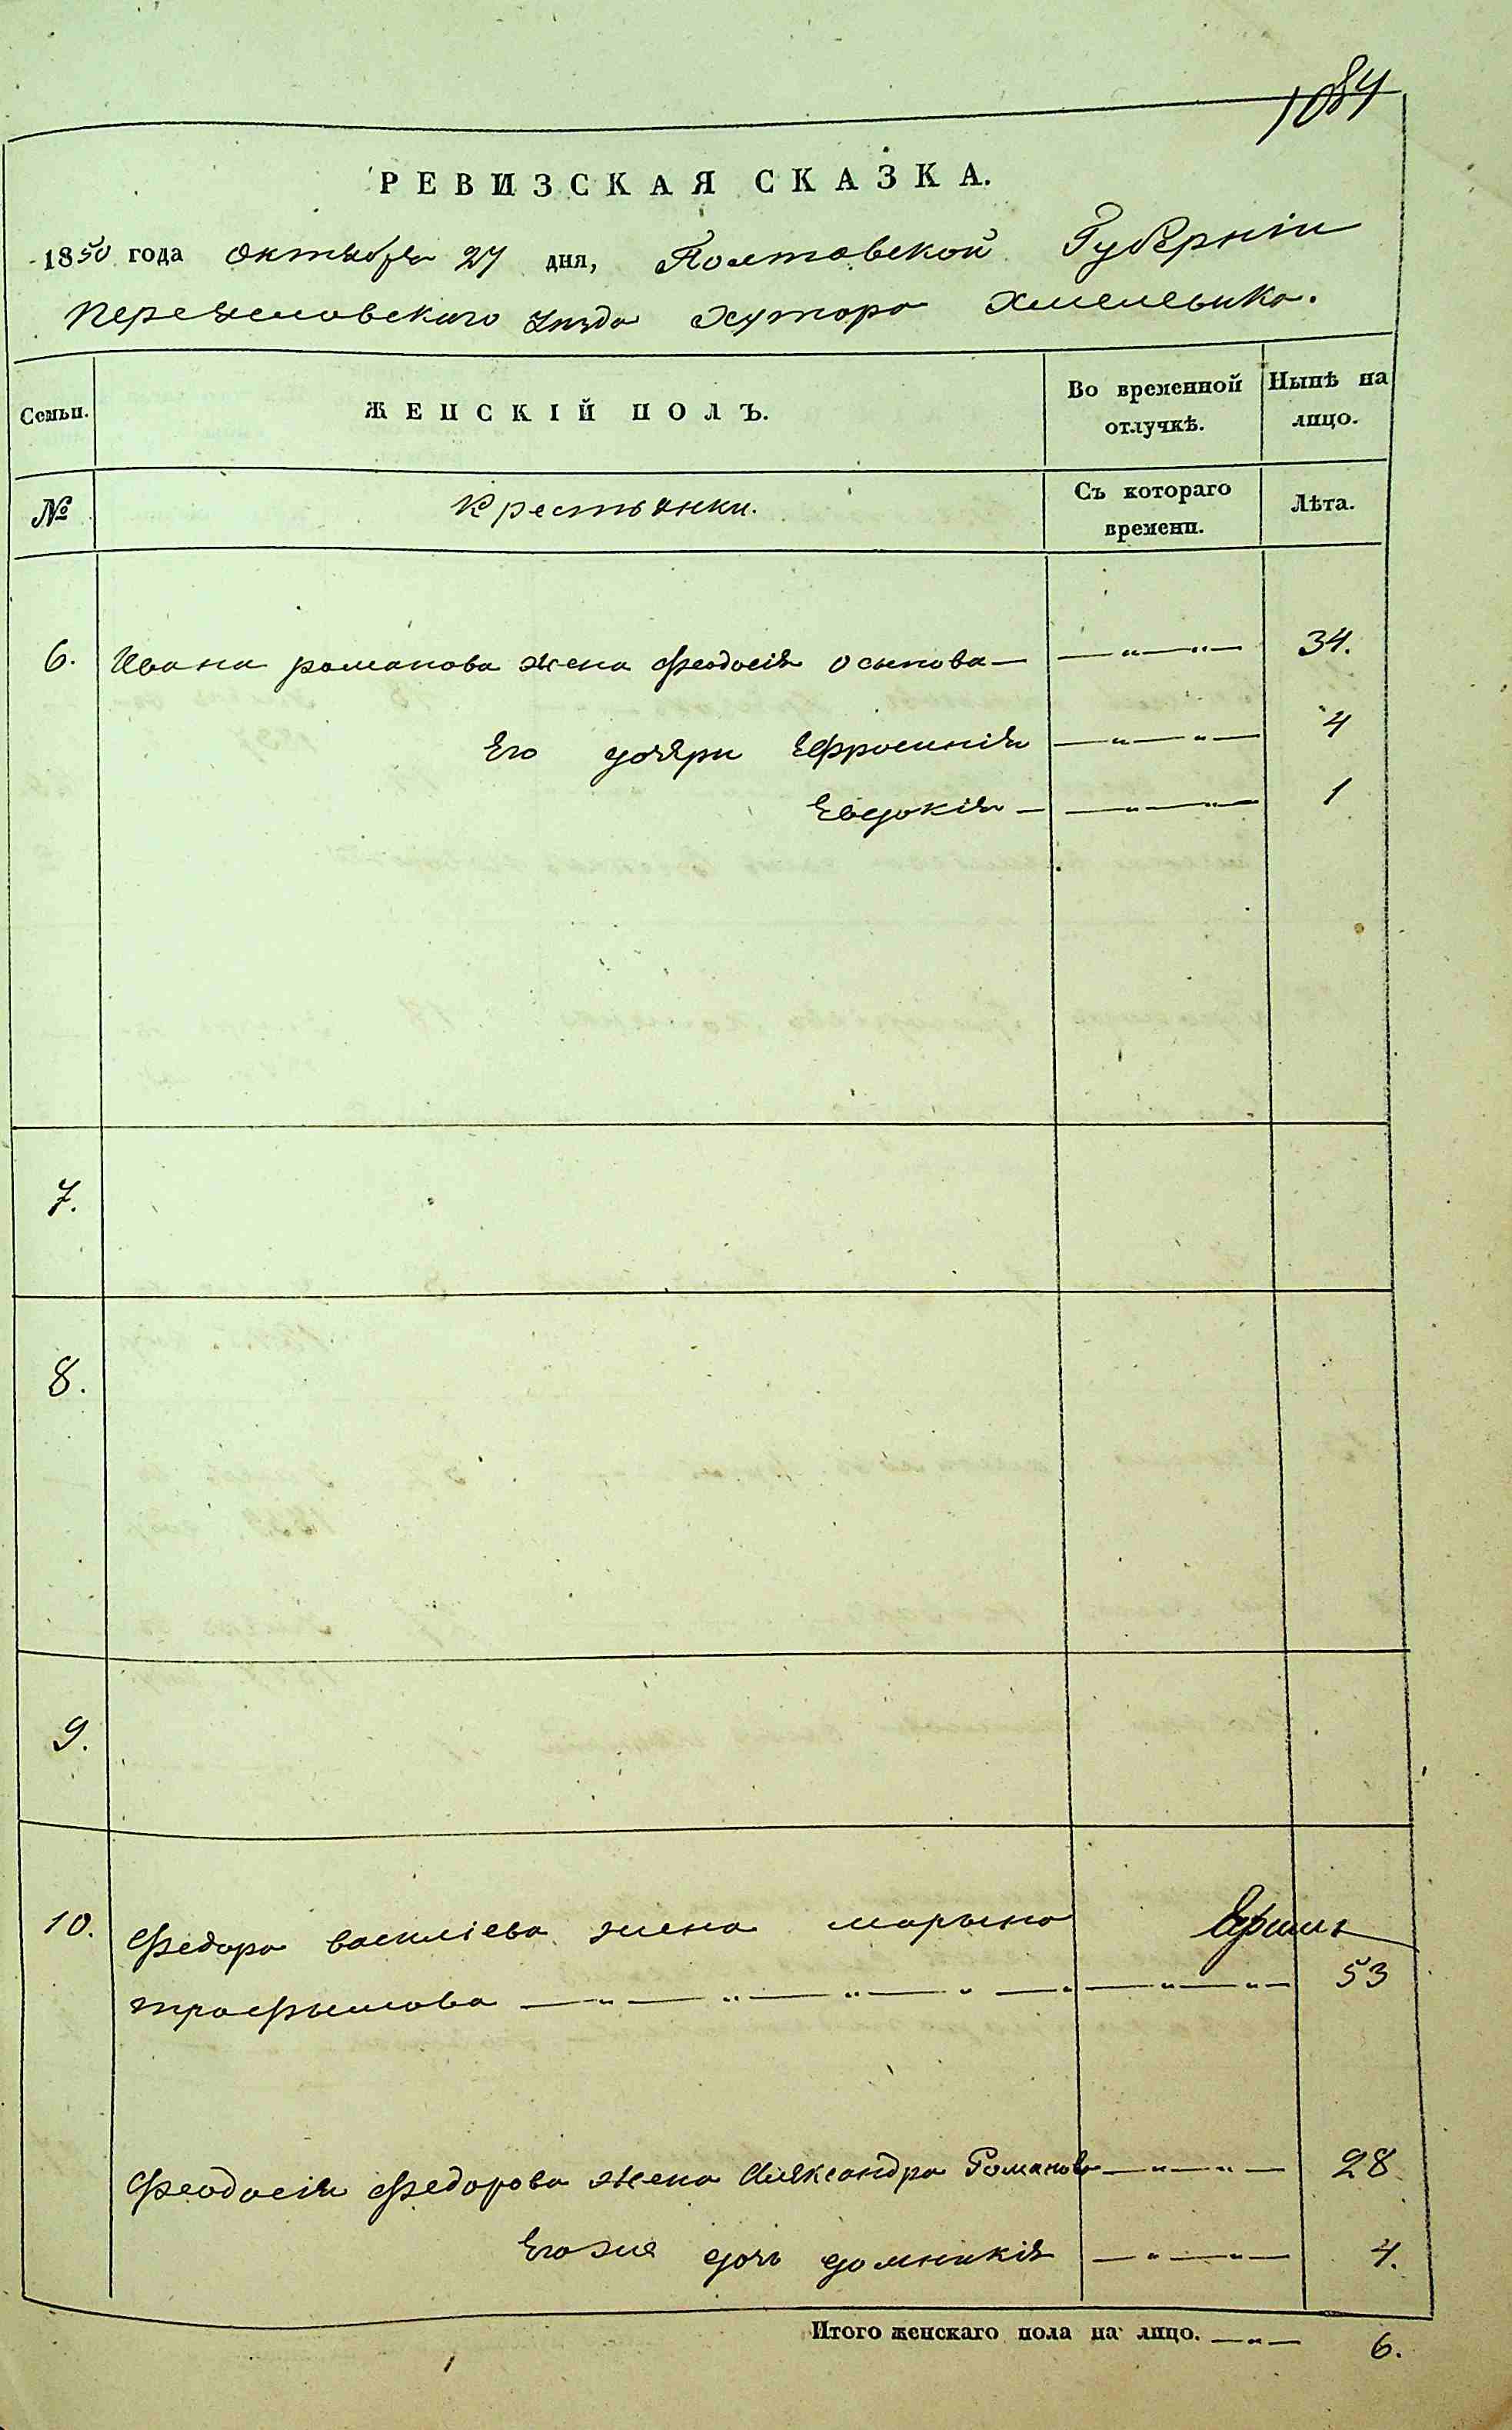 1084
РЕВИЗСКАЯ СКАЗКА.
1850 года октября 27 дня, Полтавской Губерніи
Переяславскаго уезда хутора Хмелевика.
Семьи. ЖЕНСКІЙ ПОЛЪ. Во временной отлучкѣ. Нынѣ на лицо.
№ Крестьянки. Съ котораго времени. Лѣта.
6. Ивана романова жена феодосія осыпова — — " — " — 34.
Его дочери Ефросинія — " — " — 4
Евдокія — — " — " — 1
7.
8.
9.
10. Федора василіева жена марына
трофымова — " — " — " — " — " — " — 53
Феодосія федорова жена Александра Романова — " — " — 28
Его же дочь домникія — " — " — 4.
Итого женскаго пола на лицо. — " — 6.